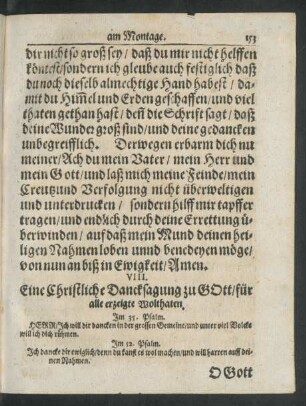 am Montage. 153
dir nicht so groß sey / daß du mir nicht helffen
köntest / sondern ich gleube auch festiglich daß
du noch dieselb almechtige Hand habest / da-
mit du Him̃el und Erden geschaffen / und viel
thaten gethan hast / deñ die Schrift sagt / daß
deine Wunder groß sind / und deine gedancken
unbegreifflich. Derwegen erbarm dich nu
meiner / Ach du mein Vater / mein Herr und
mein Gott / und laß mich meine Feinde / mein
Creutz und Verfolgung nicht überweltigen
und unterdrucken / sondern hilff mir tapffer
tragen / und endlich durch deine Errettung ü-
berwinden / auf daß mein Mund deinen hei-
ligen Nahmen loben unnd benedeyen möge /
von nun an biß in Ewigkeit / Amen.
VIII.
Eine Christliche Dancksagung zu GOtt / für
alle erzeigte Wolthaten.
Im 35. Psalm.
HERR / Ich will dir dancken in der grossen Gemeine / und unter viel Volcks
will ich dich rühmen.
Im 52. Psalm.
Ich dancke dir ewiglich / denn du kanst es wol machen / und will harren auff dei-
nen Nahmen.
O Gott